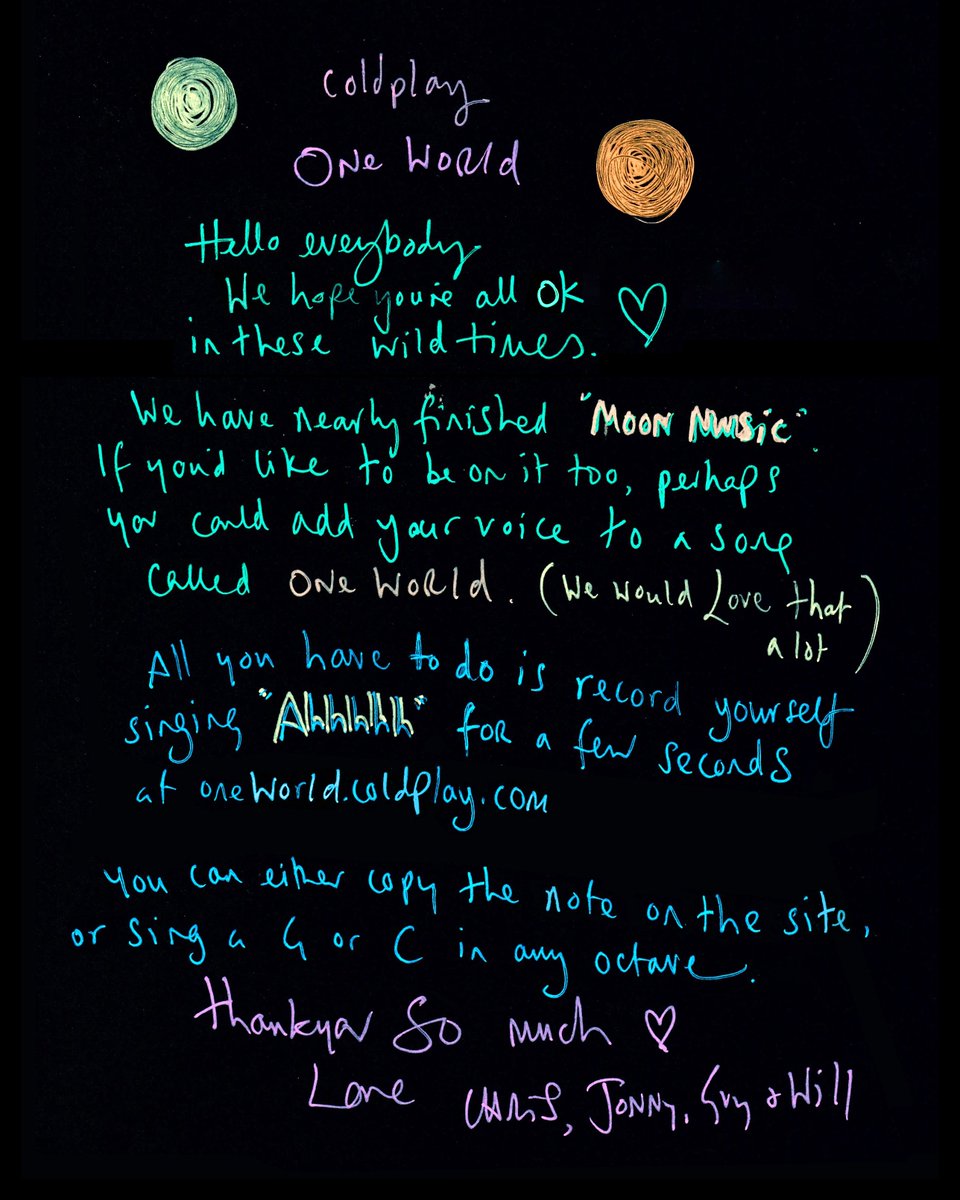 coldplay
ONE WORLD
Hello everybody
We hope you're all OK
in these wild times.
We have nearly finished "MOON MUSiC".
If you'd like to be on it too, perhaps
you could add your voice to a song
called ONE WORLD. (We would Love that
a lot)
All you have to do is record yourself
singing "Ahhhhh" for a few seconds
at oneWorld.coldplay.com
you can either copy the note on the site,
or sing a G or C in any octave.
thankyou so much
Love CHRiS, JONNY, Guy & Will